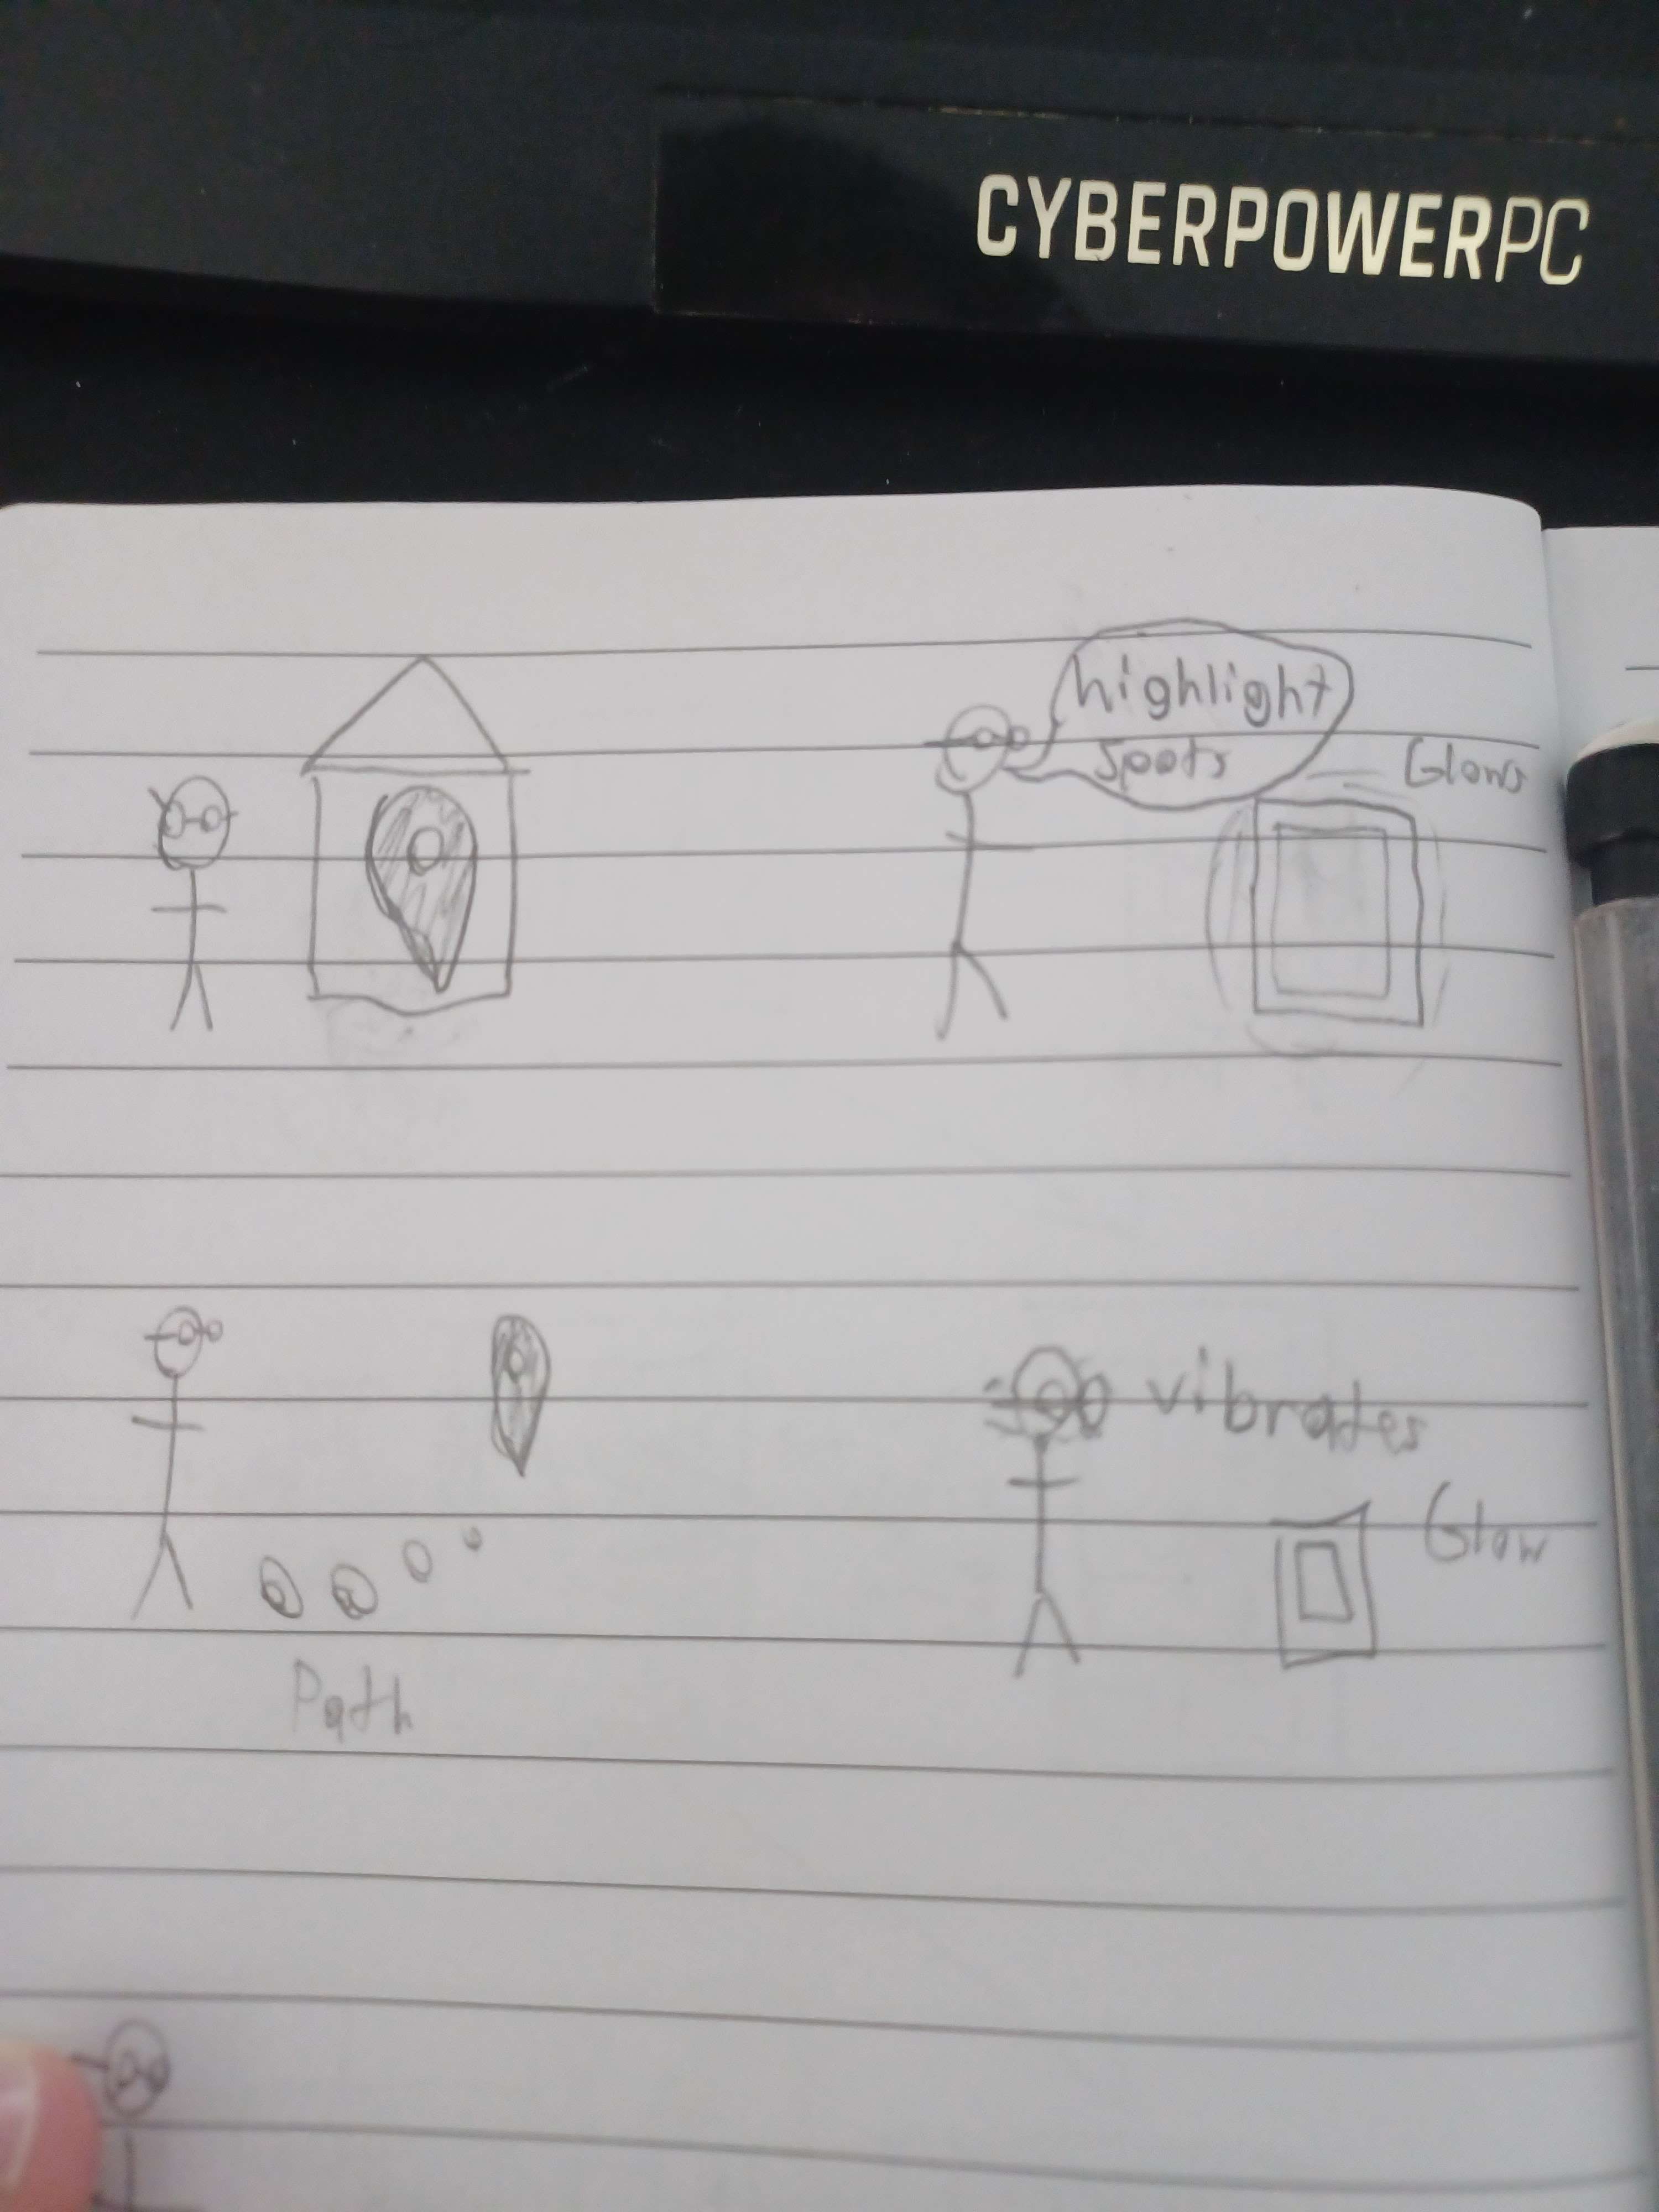 CYBERPOWERPC
highlight
spots
Glows
vibrates
Glow
Path